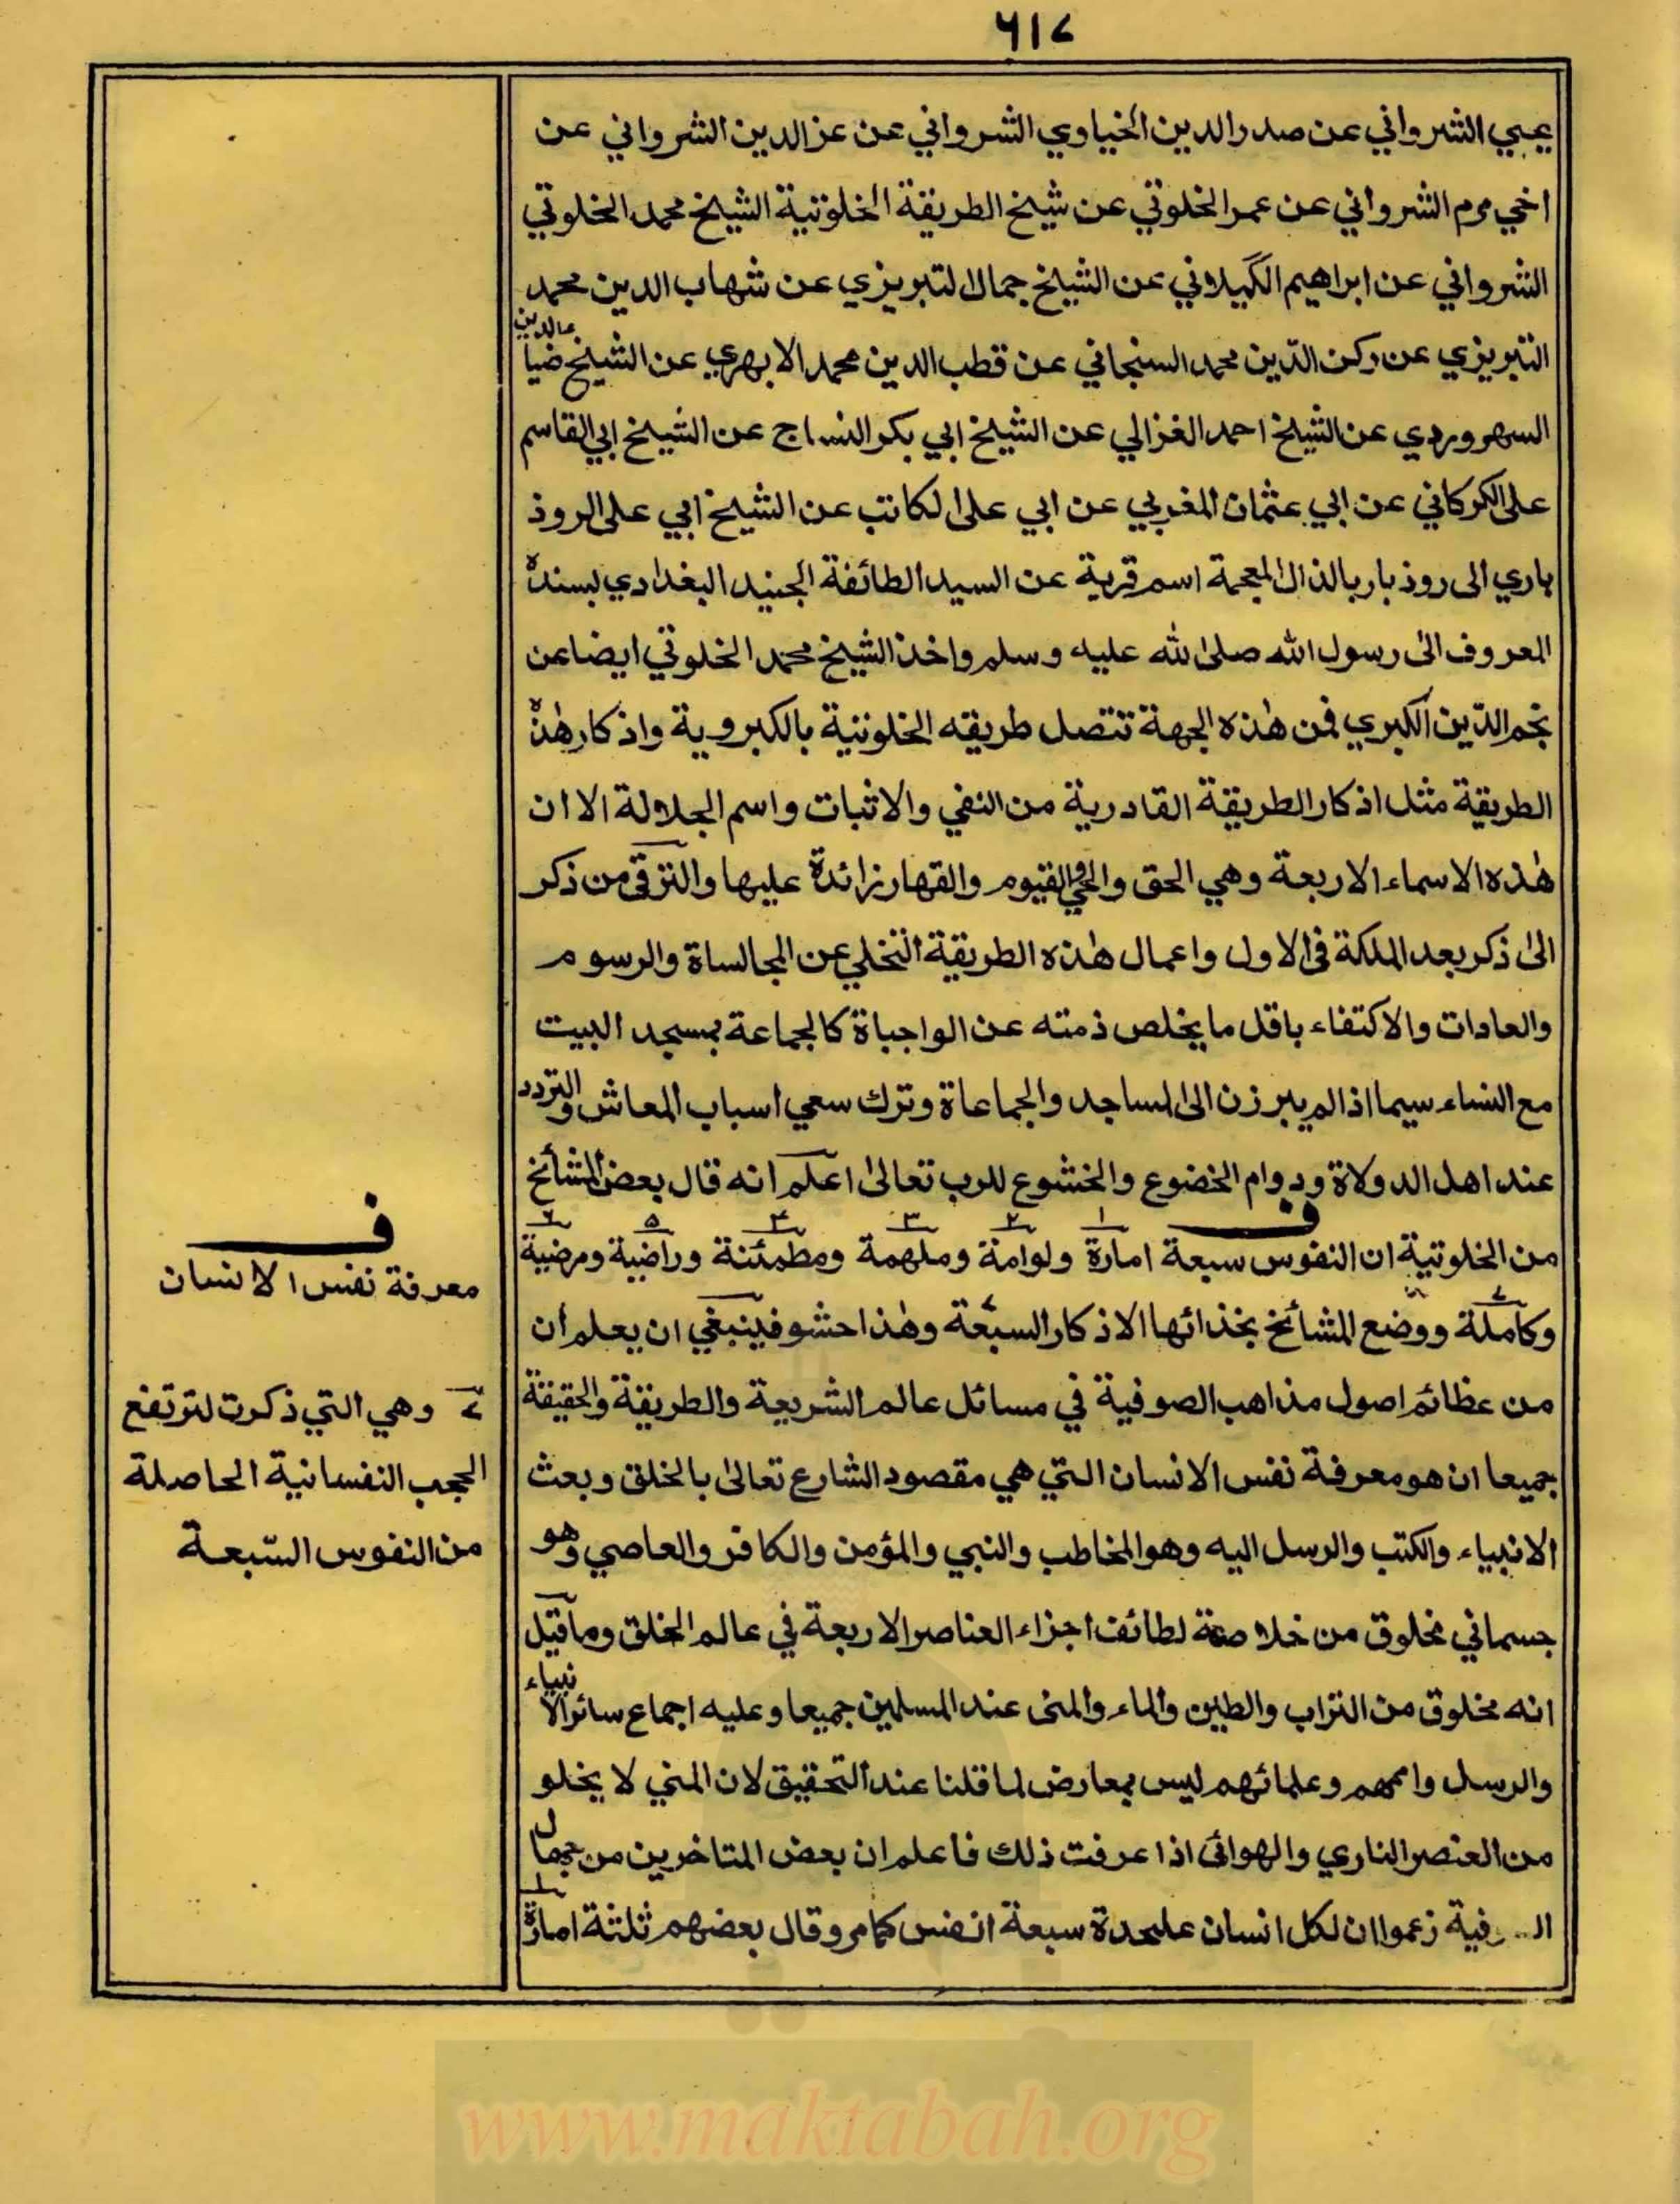 ٦١٧
يحيي الشرواني عن صدر الدين الخياوي الشرواني عن عز الدين الشرواني عن
اخي مرم الشرواني عن عمر الخلوتي عن شيخ الطريقة الخلوتية الشيخ محمد الخلوتي
الشرواني عن ابراهيم الكيلاني عن الشيخ جمال التبريزي عن شهاب الدين محمد
التبريزي عن ركن الدّين محمد السنجاني عن قطب الدين محمد الابهري عن الشيخ ضياء الدين
السهروردي عن الشيخ احمد الغزالي عن الشيخ ابي بكر النساج عن الشيخ ابي القاسم
على الكركاني عن ابي عثمان المغربي عن ابي على الكاتب عن الشيخ ابي على الروذ
باري الى روذبار بالذال المعجمة اسم قرية عن السيد الطائفة الجنيد البغدادي بسنده
المعروف الى رسول الله صلى الله عليه وسلم واخذ الشيخ محمد الخلوتي ايضا عن
نجم الدّين الكبري فمن هٰذه الجهة تتصل طريقه الخلوتية بالكبروية واذكار هٰذه
الطريقة مثل اذكار الطريقة القادرية من النفي والاثبات واسم الجلالة الا ان
هٰذه الاسماء الاربعة وهي الحق والحي والقيوم والقهار زائدة عليها والترقي من ذكر
الى ذكر بعد الملكة في الاول واعمال هٰذه الطريقة التخلي عن المجالساة والرسوم
والعادات والاكتفاء باقل ما يخلص ذمته عن الواجباة كالجماعة بمسجد البيت
مع النساء سيما اذا لم يبرزن الى المساجد والجماعاة وترك سعي اسباب المعاش والتردد
عند اهل الدولاة ودوام الخضوع والخشوع للرب تعالى اعلم انه قال بعض المشائخ
من الخلوتية ان النفوس سبعة امارة ولوامة وملهمة ومطمئنة وراضية ومرضية
وكاملة ووضع المشائخ بخذائها الاذكار السبعة وهٰذا حشو فينبغي ان يعلم ان
من عظائم اصول مذاهب الصوفية في مسائل عالم الشريعة والطريقة والحقيقة
جميعا ان هو معرفة نفس الانسان التي هي مقصود الشارع تعالى بالخلق وبعث
الانبياء والكتب والرسل اليه وهو المخاطب والنبي والمؤمن والكافر والعاصي وهو
جسماني مخلوق من خلاصة لطائف اجزاء العناصر الاربعة في عالم الخلق وما قيل
انه مخلوق من التراب والطين والماء والمنى عند المسلمين جميعا وعليه اجماع سائر الانبياء
والرسل واممهم وعلمائهم ليس بمعارض لما قلنا عند التحقيق لان المني لا يخلو
من العنصر الناري والهوائى اذا عرفت ذلك فاعلم ان بعض المتاخرين من جهال
زعموا ان لكل انسان عليحدة سبعة انفس كما مر وقال بعضهم ثلثة امارة
ف
معرفة نفس الانسان
٧ وهي التي ذكرت لترتفع
الحجب النفسانية الحاصلة
من النفوس السّبعة
www.maktabah.org